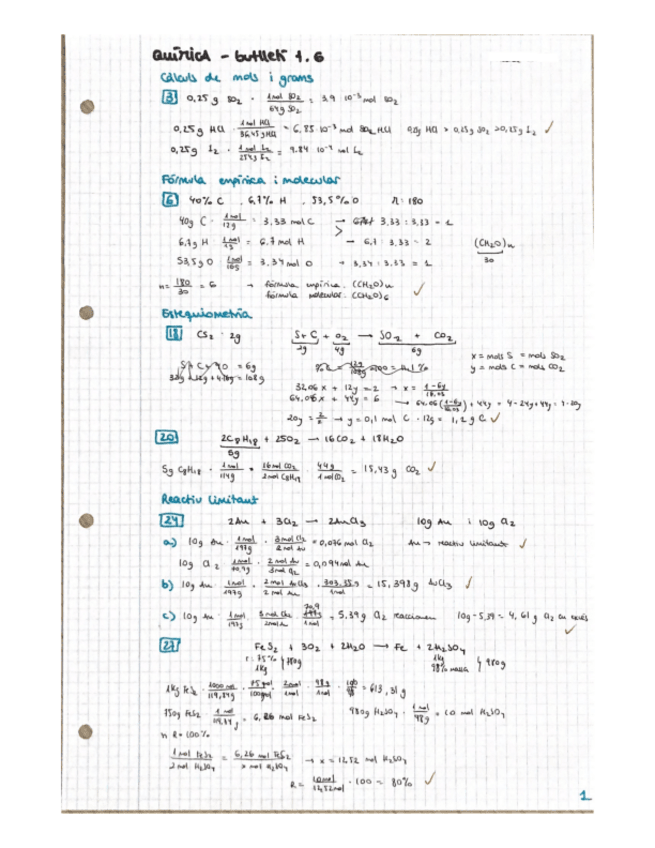 QUÍMICA - butlletí 1.6
Càlculs de mols i grams
3 0,25 g SO2 · 1 mol SO2 / 64 g SO2 = 3,9 · 10⁻³ mol SO2
0,25 g HCl · 1 mol HCl / 36,45 g HCl = 6,85 · 10⁻³ mol HCl 0,25 g HCl > 0,25 g SO2 > 0,25 g I2 ✓
0,25 g I2 · 1 mol I2 / 254 g I2 = 9,84 · 10⁻⁴ mol I2
Fórmula empírica i molecular
6 40% C , 6,7% H , 53,5% O M: 180
40g C · 1 mol / 12 g = 3,33 mol C → 3,33 : 3,33 = 1
6,7g H · 1 mol / 1 g = 6,7 mol H → 6,7 : 3,33 = 2 (CH2O)n
53,5 g O · 1 mol / 16 g = 3,34 mol O → 3,34 : 3,33 = 1 30
n = 180 / 30 = 6 → fórmula empírica: (CH2O)n
fórmula molecular: (CH2O)6 ✓
Estequiometria
18 CS2 · 2g S + C + O2 → SO2 + CO2
2g 4g 6g
x = mols S = mols SO2
y = mols C = mols CO2
32,06 x + 12y = 2
64,06 x + 44y = 6
y = 0,1 mol C · 12g = 1,2 g C ✓
20 2C8H18 + 25O2 → 16CO2 + 18H2O
5g
5g C8H18 · 1 mol / 114g · 16 mol CO2 / 2 mol C8H18 · 44 g / 1 mol CO2 = 15,43 g CO2 ✓
Reactiu limitant
24 2Au + 3Cl2 → 2AuCl3 10g Au i 10g Cl2
a) 10g Au · 1 mol / 197g · 3 mol Cl2 / 2 mol Au = 0,076 mol Cl2 Au → reactiu limitant ✓
10g Cl2 · 1 mol / 70,9g · 2 mol Au / 3 mol Cl2 = 0,094 mol Au
b) 10g Au · 1 mol / 197g · 2 mol AuCl3 / 2 mol Au · 303,35g / 1 mol = 15,398 g AuCl3 ✓
c) 10g Au · 1 mol / 197g · 3 mol Cl2 / 2 mol Au · 70,9 / 1 mol = 5,39 g Cl2 reaccionen 10g - 5,39 = 4,61 g Cl2 en excés ✓
27 FeS2 + 3O2 + 2H2O → Fe + 2H2SO4
r: 75% 750g 1kg 980g
1kg 98% massa
1kg FeS2 · 1000 / 119,84g · 98g / 1 mol = 613,31 g
750g FeS2 · 1 mol / 119,84 g = 6,26 mol FeS2 980g H2SO4 · 1 mol / 98g = 10 mol H2SO4
R = 100%
1 mol FeS2 / 2 mol H2SO4 = 6,26 mol FeS2 / x mol H2SO4 → x = 12,52 mol H2SO4
R = 10 mol / 12,52 mol · 100 = 80% ✓
1